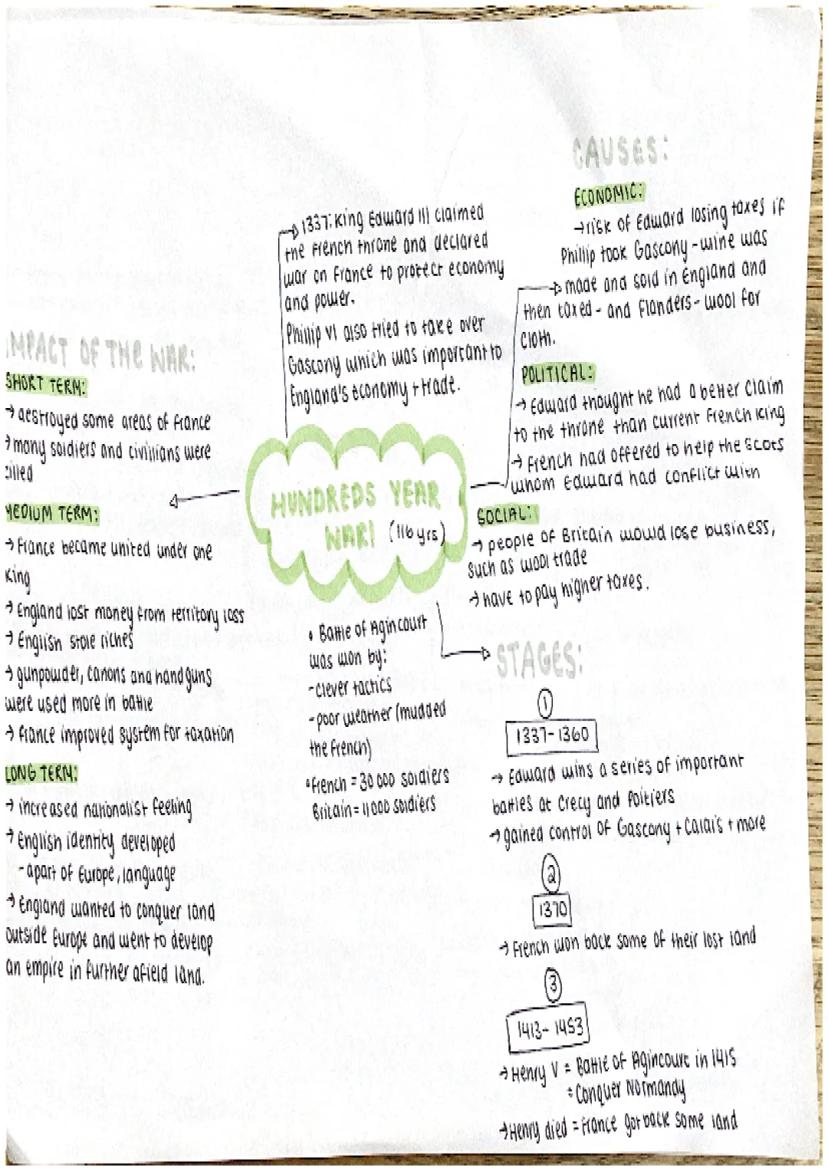 HUNDREDS YEAR
WAR! (116 yrs)
→ 1337: King Edward III claimed
the French throne and declared
war on France to protect economy
and power.
Philip VI also tried to take over
Gascony which was important to
England's economy + trade.
CAUSES:
ECONOMIC:
→ risk of Edward losing taxes if
Phillip took Gascony - wine was
made and sold in England and
then taxed - and Flanders - wool for
cloth.
POLITICAL:
→ Edward thought he had a better claim
to the throne than current French King
→ French had offered to help the Scots
whom Edward had conflict with
SOCIAL:
→ people of Britain would lose business,
such as wool trade
→ have to pay higher taxes.
STAGES:
1
1337-1360
→ Edward wins a series of important
battles at Crecy and Poitiers
→ gained control of Gascony + Calais + more
2
1370
→ French won back some of their lost land
3
1413-1453
→ Henry V = Battle of Agincourt in 1415
= Conquer Normandy
→ Henry died = France got back some land
• Battle of Agincourt
was won by:
- clever tactics
- poor weather (mudded
the French)
• French = 30 000 soldiers
Britain = 11 000 soldiers
IMPACT OF THE WAR:
SHORT TERM:
→ destroyed some areas of France
→ many soldiers and civilians were
killed
MEDIUM TERM:
→ France became united under one
King
→ England lost money from territory loss
→ English stole riches
→ gunpowder, canons and handguns
were used more in battle
→ France improved system for taxation
LONG TERM:
→ increased nationalist feeling
→ English identity developed
- apart of Europe, language
→ England wanted to conquer land
outside Europe and went to develop
an empire in further afield land.